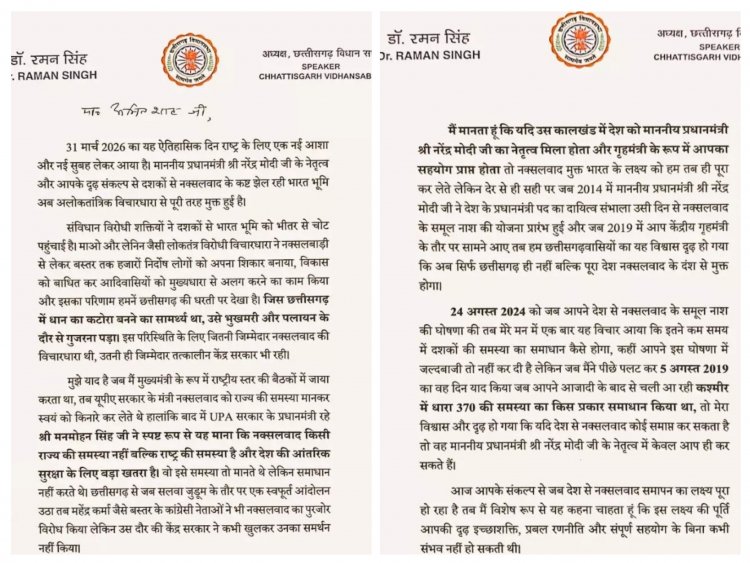 डॉ. रमन सिंह
Dr. RAMAN SINGH
अध्यक्ष, छत्तीसगढ़ विधान सभ
SPEAKER
CHHATTISGARH VIDHANSAB
मा. अमित शाह जी,
31 मार्च 2026 का यह ऐतिहासिक दिन राष्ट्र के लिए एक नई आशा
और नई सुबह लेकर आया है। माननीय प्रधानमंत्री श्री नरेंद्र मोदी जी के नेतृत्व
और आपके दृढ़ संकल्प से दशकों से नक्सलवाद के कष्ट झेल रही भारत भूमि
अब अलोकतांत्रिक विचारधारा से पूरी तरह मुक्त हुई है।
संविधान विरोधी शक्तियों ने दशकों से भारत भूमि को भीतर से चोट
पहुंचाई है। माओ और लेनिन जैसी लोकतंत्र विरोधी विचारधारा ने नक्सलबाड़ी
से लेकर बस्तर तक हजारों निर्दोष लोगों को अपना शिकार बनाया, विकास
को बाधित कर आदिवासियों को मुख्यधारा से अलग करने का काम किया
और इसका परिणाम हमनें छत्तीसगढ़ की धरती पर देखा है। जिस छत्तीसगढ़
में धान का कटोरा बनने का सामर्थ्य था, उसे भुखमरी और पलायन के
दौर से गुजरना पड़ा। इस परिस्थिति के लिए जितनी जिम्मेदार नक्सलवाद की
विचारधारा थी, उतनी ही जिम्मेदार तत्कालीन केंद्र सरकार भी रही।
मुझे याद है जब मैं मुख्यमंत्री के रूप में राष्ट्रीय स्तर की बैठकों में जाया
करता था, तब यूपीए सरकार के मंत्री नक्सलवाद को राज्य की समस्या मानकर
स्वयं को किनारे कर लेते थे हालांकि बाद में UPA सरकार के प्रधानमंत्री रहे
श्री मनमोहन सिंह जी ने स्पष्ट रूप से यह माना कि नक्सलवाद किसी
राज्य की समस्या नहीं बल्कि राष्ट्र की समस्या है और देश की आंतरिक
सुरक्षा के लिए बड़ा खतरा है। वो इसे समस्या तो मानते थे लेकिन समाधान
नहीं करते थे। छत्तीसगढ़ से जब सलवा जुडूम के तौर पर एक स्वफूर्त आंदोलन
उठा तब महेंद्र कर्मा जैसे बस्तर के कांग्रेसी नेताओं ने भी नक्सलवाद का पुरजोर
विरोध किया लेकिन उस दौर की केंद्र सरकार ने कभी खुलकर उनका समर्थन
नहीं किया।
डॉ. रमन सिंह
Dr. RAMAN SINGH
अध्यक्ष, छत्तीसगढ़ वि
SPEAKER
CHHATTISGARH VIDH
मैं मानता हूं कि यदि उस कालखंड में देश को माननीय प्रधानमंत्री
श्री नरेंद्र मोदी जी का नेतृत्व मिला होता और गृहमंत्री के रूप में आपका
सहयोग प्राप्त होता तो नक्सलवाद मुक्त भारत के लक्ष्य को हम तब ही पूरा
कर लेते लेकिन देर से ही सही पर जब 2014 में माननीय प्रधानमंत्री श्री नरेंद्र
मोदी जी ने देश के प्रधानमंत्री पद का दायित्व संभाला उसी दिन से नक्सलवाद
के समूल नाश की योजना प्रारंभ हुई और जब 2019 में आप केंद्रीय गृहमंत्री
के तौर पर सामने आए तब हम छत्तीसगढ़वासियों का यह विश्वास दृढ़ हो गया
कि अब सिर्फ छत्तीसगढ़ ही नहीं बल्कि पूरा देश नक्सलवाद के दंश से मुक्त
होगा।
24 अगस्त 2024 को जब आपने देश से नक्सलवाद के समूल नाश
की घोषणा की तब मेरे मन में एक बार यह विचार आया कि इतने कम समय
में दशकों की समस्या का समाधान कैसे होगा, कहीं आपने इस घोषणा में
जल्दबाजी तो नहीं कर दी है लेकिन जब मैंने पीछे पलट कर 5 अगस्त 2019
का वह दिन याद किया जब आपने आजादी के बाद से चली आ रही कश्मीर
में धारा 370 की समस्या का किस प्रकार समाधान किया था, तो मेरा
विश्वास और दृढ़ हो गया कि यदि देश से नक्सलवाद कोई समाप्त कर सकता है
तो वह माननीय प्रधानमंत्री श्री नरेंद्र मोदी जी के नेतृत्व में केवल आप ही कर
सकते हैं।
आज आपके संकल्प से जब देश से नक्सलवाद समापन का लक्ष्य पूरा
हो रहा है तब मैं विशेष रूप से यह कहना चाहता हूं कि इस लक्ष्य की पूर्ति
आपकी दृढ़ इच्छाशक्ति, प्रबल रणनीति और संपूर्ण सहयोग के बिना कभी
संभव नहीं हो सकती थी।